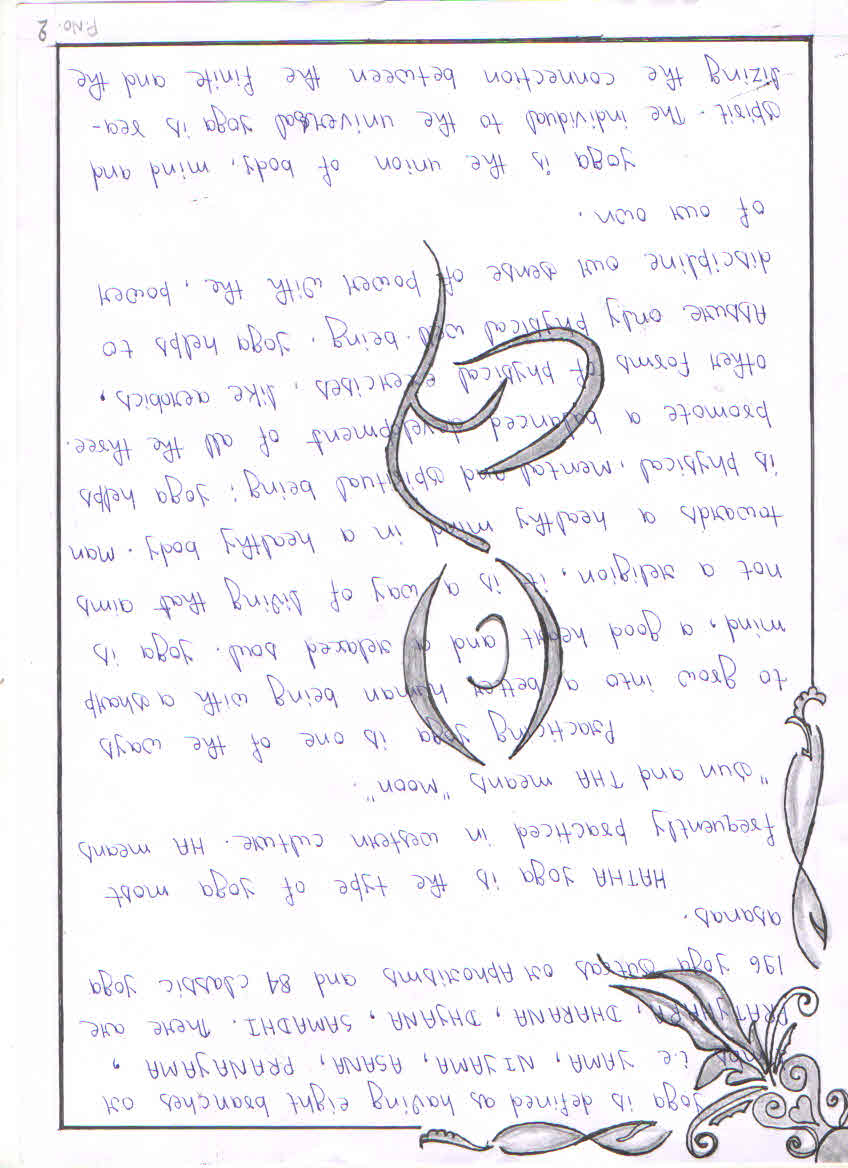 Yoga is defined as having eight branches or
i.e YAMA, NIYAMA, ASANA, PRANAYAMA,
PRATYHARA, DHARANA, DHYANA, SAMADHI. There are
196 yoga sutras or Aphorisms and 84 classic yoga
asanas.
HATHA yoga is the type of yoga most
frequently practiced in western culture. HA means
"sun and THA means "moon".
Practicing yoga is one of the ways
to grow into a better human being with a sharp
mind, a good heart and a relaxed soul. Yoga is
not a religion, it is a way of living that aims
towards a healthy mind in a healthy body. Man
is physical, mental and spiritual being; yoga helps
promote a balanced development of all the three.
other forms of physical exercises, like aerobics,
Assure only physical well.being. Yoga helps to
discipline our sense of power with the, power
of our own.
Yoga is the union of body, mind, and
spirit. The individual to the universal yoga is rea-
lizing the connection between the finite and the
P.No. 2